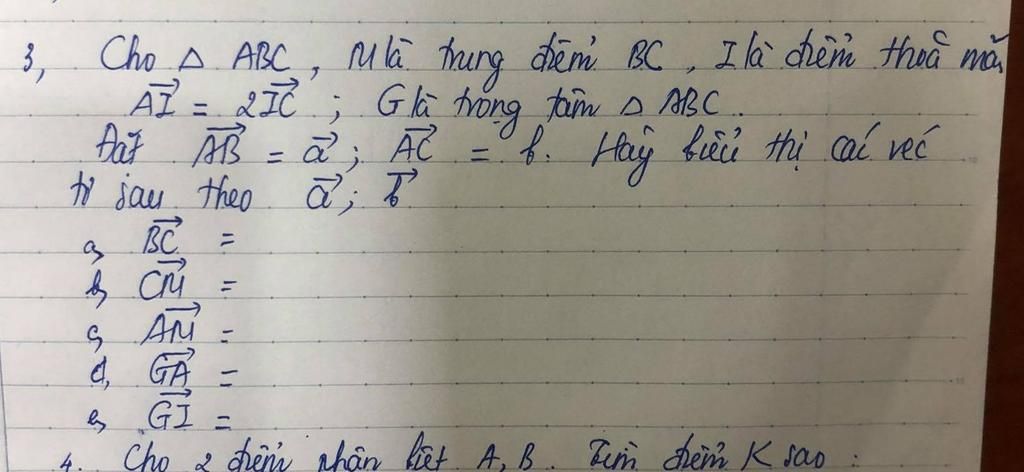 3, Cho △ ABC, M là trung điểm BC, I là điểm thoả mãn
$\overrightarrow{AI}$ = 2$\overrightarrow{IC}$ ; G là trọng tâm △ ABC.
Đặt $\overrightarrow{AB}$ = $\overrightarrow{a}$ ; $\overrightarrow{AC}$ = b. Hãy biểu thị các véc
tơ sau theo $\overrightarrow{a}$ ; $\overrightarrow{b}$
a, $\overrightarrow{BC}$ =
b, $\overrightarrow{CM}$ =
c, $\overrightarrow{AM}$ =
d, $\overrightarrow{GA}$ =
e, $\overrightarrow{GI}$ =
4. Cho 2 điểm phân biệt A, B. Tìm điểm K sao :